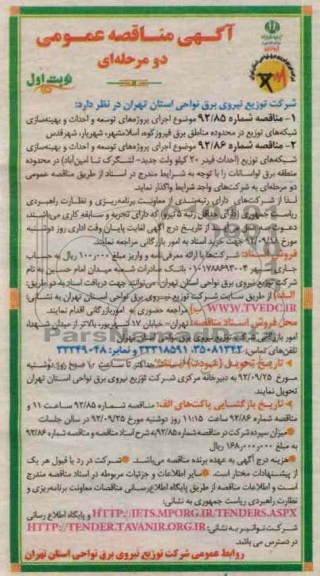 آگهی مناقصه عمومی
دو مرحله‌ای
نوبت اول
شرکت توزیع نیروی برق نواحی استان تهران در نظر دارد:
۱- مناقصه شماره ۹۲/۸۵ موضوع اجرای پروژه‌های توسعه و احداث و بهینه‌سازی
شبکه‌های توزیع در محدوده مناطق برق فیروزکوه، اسلامشهر، شهریار، شهرقدس
۲- مناقصه شماره ۹۲/۸۶ موضوع اجرای پروژه‌های توسعه و احداث و بهینه‌سازی
شبکه‌های توزیع (احداث فیدر ۲۰ کیلو ولت جدید- لشگرک تا امین‌آباد) در محدوده
منطقه برق لواسانات را با توجه به شرایط مندرج در اسناد از طریق مناقصه عمومی
دو مرحله‌ای به شرکت‌های واجد شرایط واگذار نماید.
لذا از شرکت‌های دارای رتبه‌بندی از معاونت برنامه‌ریزی و نظارت راهبردی
ریاست جمهوری (دارای حداقل رتبه ۵ نیرو) که دارای تجربه و سابقه کاری می‌باشند
دعوت از تاریخ درج آگهی لغایت پایان وقت اداری روز دوشنبه
مورخ ۹۲/۰۹/۱۸ جهت خرید اسناد به امور بازرگانی مراجعه نمایند.
فروش اسناد: شرکت‌ها با ارائه معرفی‌نامه و واریز مبلغ ۱۰۰,۰۰۰ ریال به حساب
جاری سپهر ۰۱۰۱۷۸۸۹۳۰۰۴ بانک صادرات شعبه میدان امام حسین به نام
شرکت توزیع نیروی برق نواحی استان تهران، می‌توانند جهت دریافت اسناد به دو طریق:
الف) از طریق سایت شرکت توزیع نیروی برق نواحی استان تهران به نشانی:
WWW.TVEDC.IR ب) مراجعه حضوری به امور بازرگانی اقدام نمایند.
محل فروش اسناد مناقصه: تهران- خیابان ۱۷ شهریور، بالاتر از میدان شهدا،
امور بازرگانی شرکت توزیع نیروی برق نواحی استان تهران
تلفن‌های تماس: ۳۵۰۸۱۳۴۲، ۳۳۳۱۸۵۹۱ و نمابر: ۳۳۳۴۹۰۴۸
تاریخ تحویل (عودت) اسناد: حداکثر تا ساعت ۱۰ صبح روز دوشنبه
مورخ ۹۲/۰۹/۲۵ به دبیرخانه مرکزی شرکت توزیع نیروی برق نواحی استان تهران
تحویل نمایند.
تاریخ بازگشایی پاکت‌های الف: مناقصه شماره ۹۲/۸۵ ساعت ۱۱ و
مناقصه شماره ۹۲/۸۶ ساعت ۱۱:۱۵ روز دوشنبه مورخ ۹۲/۰۹/۲۵ در سالن جلسات
میزان سپرده شرکت در مناقصه شماره ۹۲/۸۵ به شرح اسناد مناقصه و مناقصه شماره ۹۲/۸۶
به مبلغ ۱۶۸,۰۰۰,۰۰۰ ریال
هزینه درج آگهی به عهده برنده مناقصه می‌باشد. شرکت در رد یا قبول هر یک
از پیشنهادات مختار است سایر اطلاعات و جزئیات مربوطه در اسناد مناقصه مندرج
است و اطلاعات مناقصه از طریق پایگاه اطلاع‌رسانی مناقصات معاونت برنامه‌ریزی و
نظارت راهبردی ریاست جمهوری به نشانی:
HTTP://IETS.MPORG.IR/TENDERS.ASPX و پایگاه اطلاع رسانی
شرکت توانیر به نشانی: HTTP://TENDER.TAVANIR.ORG.IR
در دسترس می باشد.
روابط عمومی شرکت توزیع نیروی برق نواحی استان تهران